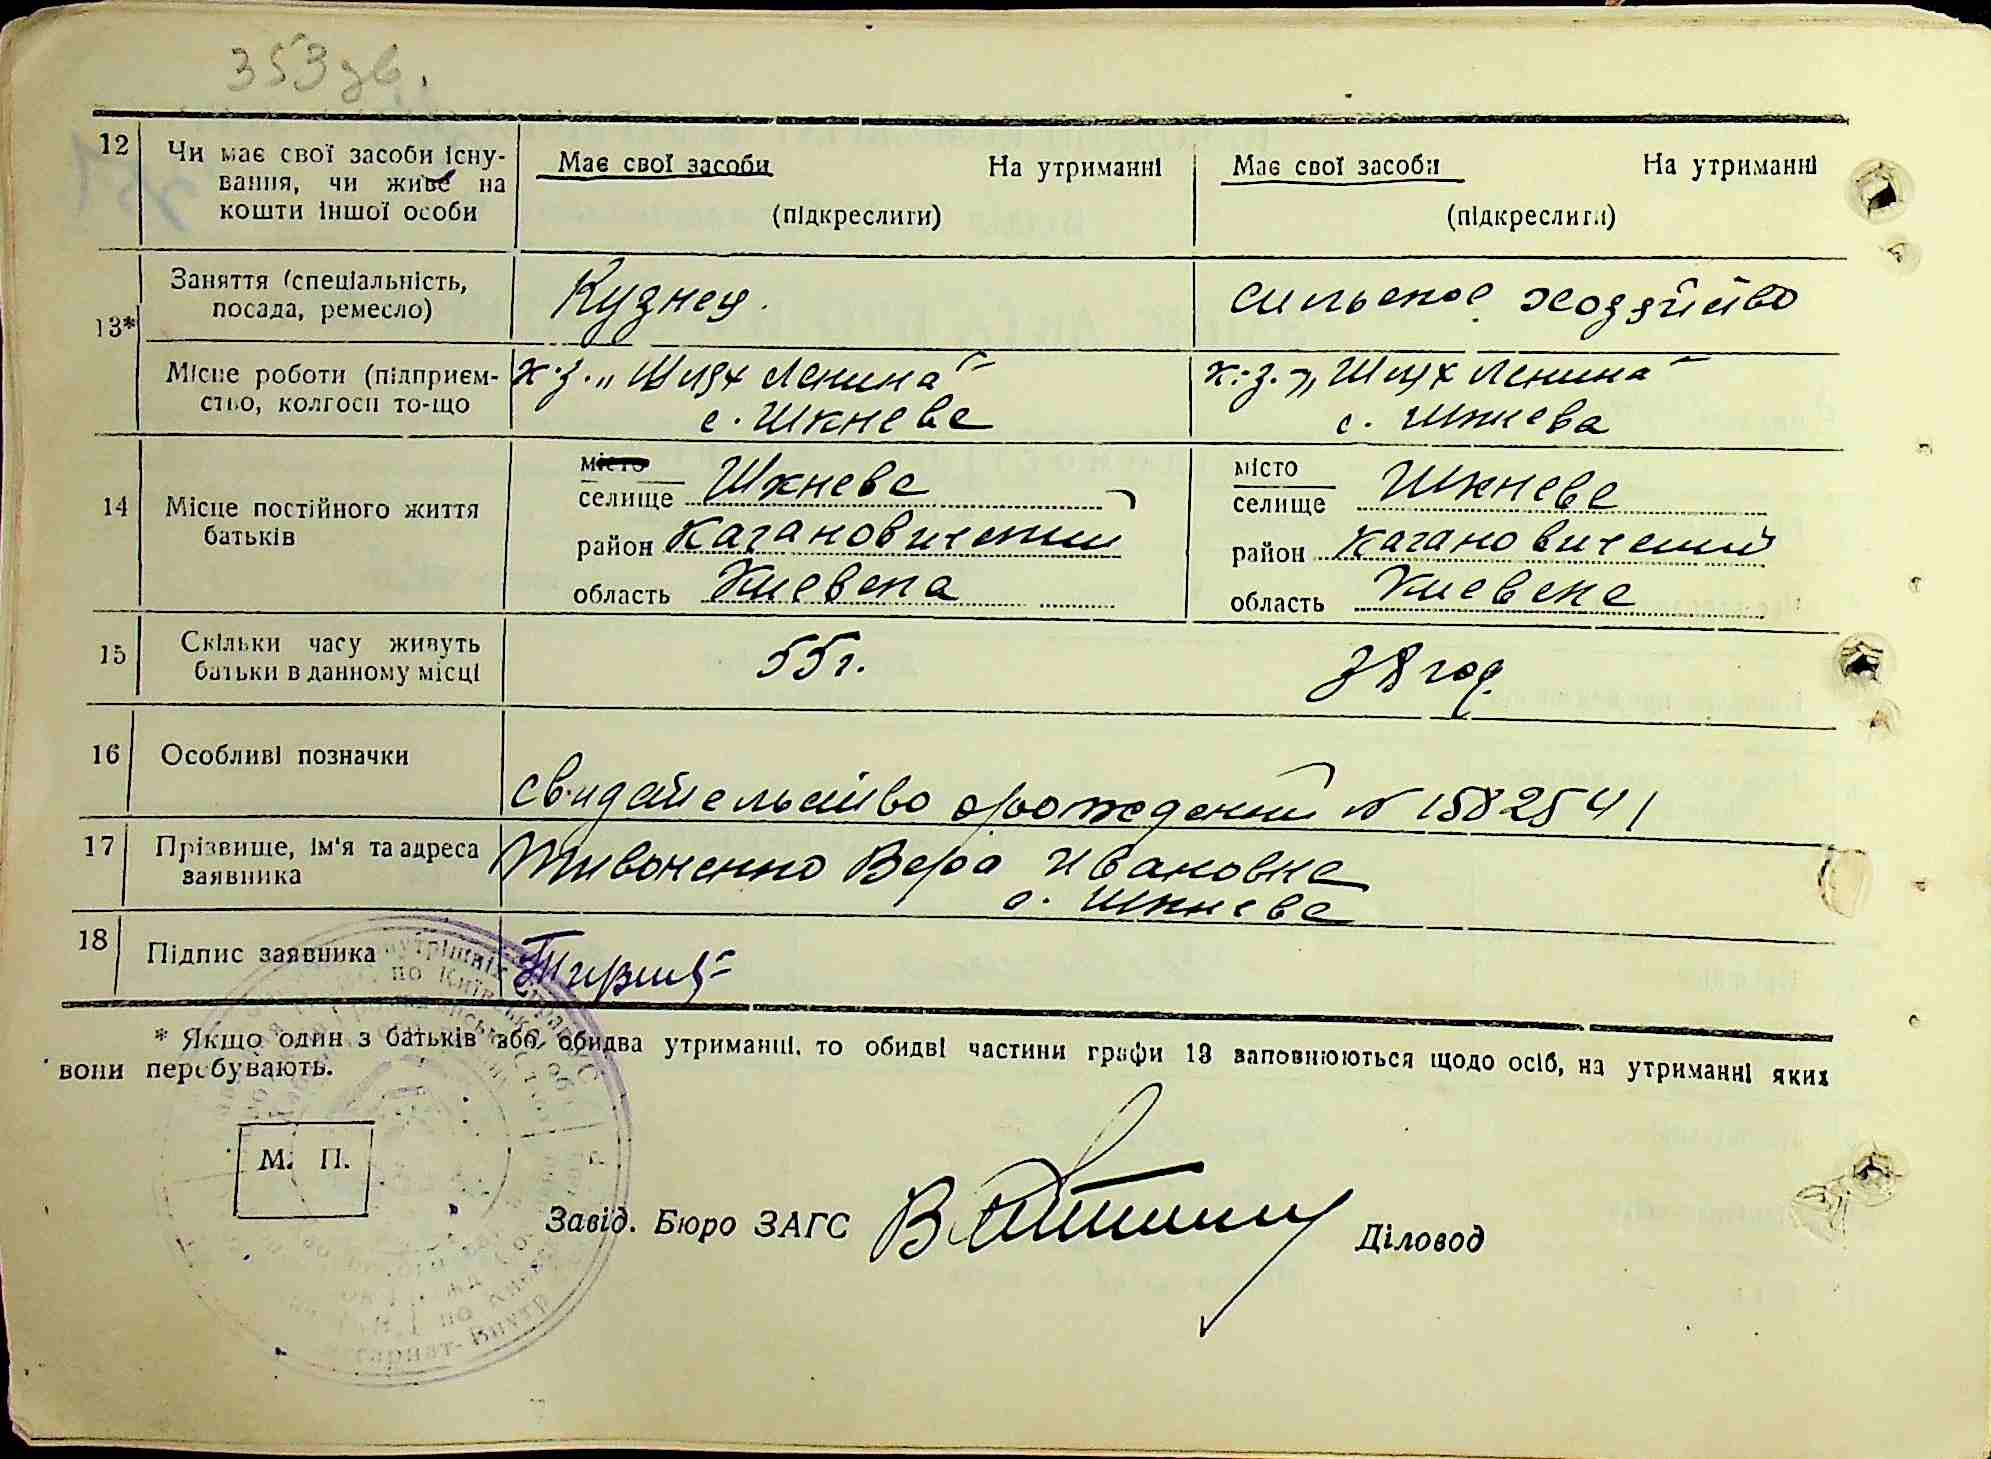 353 зв.
12
Чи має свої засоби існу-
вання, чи живе на
кошти іншої особи
Має свої засоби На утриманні
(підкреслити)
Має свої засоби На утриманні
(підкреслити)
13*
Заняття (спеціальність,
посада, ремесло)
Кузнец.
сильское хозяйство
Місце роботи (підприєм-
ство, колгосп то-що
к.з. „Шлях Ленина"
с. Шкнева
к.з. „Шлях Ленина"
с. Шкнева
14
Місце постійного життя
батьків
місто
селище Шкнева
район Кагановический
область Киевска
місто
селище Шкнева
район Кагановический
область Киевска
15
Скільки часу живуть
батьки в данному місці
55 г.
38 год.
16
Особливі позначки
свидательство орождении № 1582541
17
Прізвище, ім'я та адреса
заявника
Вера Ивановна
с. Шкнева
18
Підпис заявника
* Якщо один з батьків або обидва утриманці, то обидві частини графи 13 заповнюються щодо осіб, на утриманні яких
вони перебувають.
М. П.
Завід. Бюро ЗАГС
Діловод